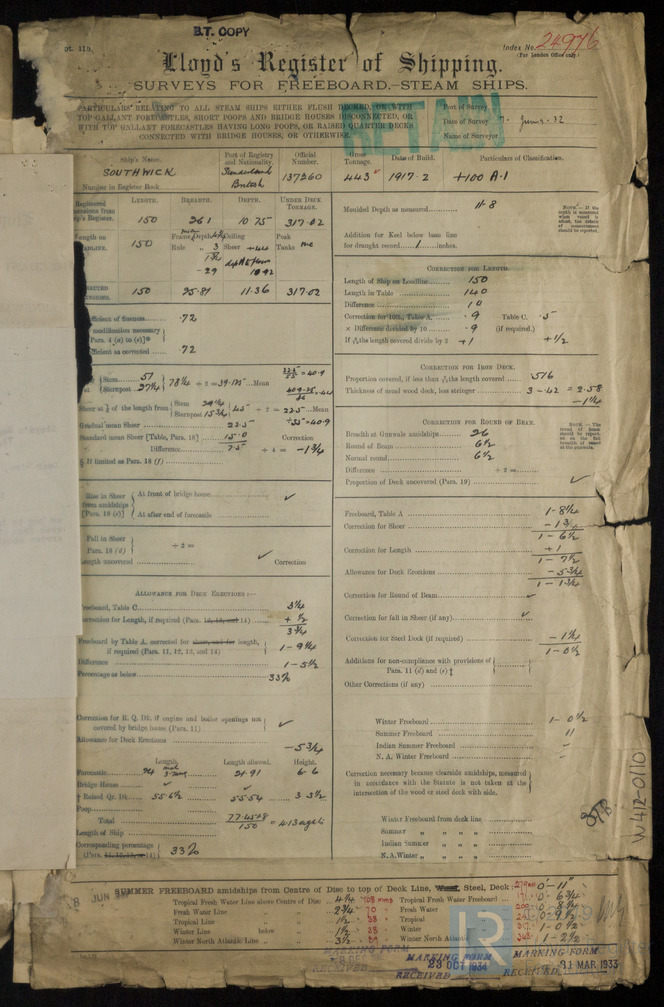 B.T. COPY
Index No. 24976
(For London Office only.)
Lloyd's Register of Shipping.
SURVEYS FOR FREEBOARD.—STEAM SHIPS.
PARTICULARS RELATING TO ALL STEAM SHIPS EITHER FLUSH DECKED, OR WITH
TOP GALLANT FORECASTLES, SHORT POOPS AND BRIDGE HOUSES DISCONNECTED, OR
WITH TOP GALLANT FORECASTLES HAVING LONG POOPS, OR RAISED QUARTER DECKS
CONNECTED WITH BRIDGE HOUSES, OR OTHERWISE.
Port of Survey
Date of Survey June 32
Name of Surveyor
RETAIN
Ship's Name. Port of Registry and Nationality. Official Number. Gross Tonnage. Date of Build. Particulars of Classification.
SOUTHWICK Sunderland British 137260 443 1917-2 +100 A.1
Number in Register Book
Registered Dimensions from Ship's Register. LENGTH. BREADTH. DEPTH. UNDER DECK TONNAGE.
150 26.1 10.75 317.02
150 Frame Depth Ceiling Peak Tanks
Rule 3 Sheer
-.29 10.92
150 25.81 11.36 317.02
Coefficient of fineness .72
modification necessary
[Para. 4 (a) to (e)]*
Coefficient as corrected .72
Stem 51
Sternpost 27 1/4 78 1/4 ÷ 2 = 39.125 Mean
Sheer at 1/8 of the length from Stem Sternpost 15 3/4 45 ÷ 2 = 22.5 Mean
Gradual mean Sheer 22.5
Standard mean Sheer [Table, Para. 18] 15.0 Correction
Difference 7.5 ÷ 4 = -1 3/4
§ If limited as Para. 18 (f)
Rise in Sheer from amidships [Para. 18 (e)] At front of bridge house ✓
At after end of forecastle
Fall in Sheer Para. 18 (d) ÷ 2 =
Length uncovered ✓ Correction
ALLOWANCE FOR DECK ERECTIONS:—
Freeboard, Table C 3 1/4
Correction for Length, if required (Para. 12, 13, and 14) + 1/2
3 3/4
Freeboard by Table A. corrected for sheer, and for length, if required (Para. 11, 12, 13, and 14) 1-9 1/4
Difference 1-5 1/2
Percentage as below 33%
Correction for R. Q. Dk. if engine and boiler openings not covered by bridge house (Para. 11) ✓
Allowance for Deck Erections -5 3/4
Length. Length allowed. Height.
Forecastle 24 21.91 6-6
Bridge House ✓
† Raised Qr. Dk. 55-6 1/2 55.54 3-3 1/2
Poop
Total 77.45
Length of Ship 150
Corresponding percentage (Para. 11, 12, 13, or 14) 33%
Moulded Depth as measured 11-8
NOTE.—If the depth is measured when vessel is afloat, the details of measurement should be reported.
Addition for Keel below base line
for draught record 1 inches.
CORRECTION FOR LENGTH.
Length of Ship on Loadline 150
Length in Table 140
Difference 10
Correction for 10ft., Table A. .9 Table C. .5
× Difference divided by 10 .9 (if required.)
If the length covered divide by 2 +1 +1/2
CORRECTION FOR IRON DECK.
Proportion covered, if less than the length covered .516
Thickness of usual wood deck, less stringer 3 -.42 = 2.58
-1 1/4
CORRECTION FOR ROUND OF BEAM.
Breadth at Gunwale amidships 26
Round of Beam 6 1/2
Normal round 6 1/2
Difference ÷ 2 =
Proportion of Deck uncovered (Para. 19) ✓
Freeboard, Table A 1-8 1/4
Correction for Sheer -1 3/4
1-6 1/2
Correction for Length +1
1-7 1/2
Allowance for Deck Erections -5 3/4
1-1 3/4
Correction for Round of Beam ✓
Correction for fall in Sheer (if any) ✓
Correction for Steel Deck (if required) -1 1/4
1-0 1/2
Additions for non-compliance with provisions of Para. 11 (d) and (e) ‡
Other Corrections (if any)
Winter Freeboard 1-0 1/2
Summer Freeboard 11
Indian Summer Freeboard -
N. A. Winter Freeboard -
Correction necessary because clearside amidships, measured
in accordance with the Statute is not taken at the
intersection of the wood or steel deck with side.
Winter Freeboard from deck line
Summer " " " "
Indian Summer " "
N.A. Winter " " "
W412-0110
SUMMER FREEBOARD amidships from Centre of Disc to top of Deck Line, Wood, Steel, Deck: 279 mm 0'-11"
Tropical Fresh Water Line above Centre of Disc 4 1/4 108 mms Tropical Fresh Water Freeboard 171 0'-6 3/4
Fresh Water Line " " 2 3/4 70 Fresh Water 0'-8 1/4
Tropical Line " " 1 1/2 38 Tropical 241 0'-9 1/2
Winter Line below " 1 1/2 38 Winter 317 1-0 1/2
Winter North Atlantic Line " " 3 1/2 89 Winter North Atlantic 368 1-2 1/2
MARKING FORM
RECEIVED
MARKING FORM
23 OCT 1934
RECEIVED
MARKING FORM
31 MAR 1933
RECEIVED
LR